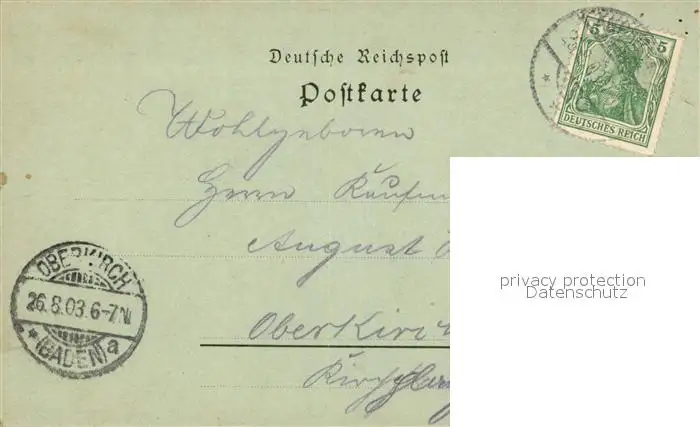 Deutsche Reichspost
Postkarte
5 5
DEUTSCHES REICH
Wohlgeboren
Herrn Kaufm
August
Oberkirc
OBERKIRCH
26.8.03.6-7N
* (BADEN) a
privacy protection
Datenschutz